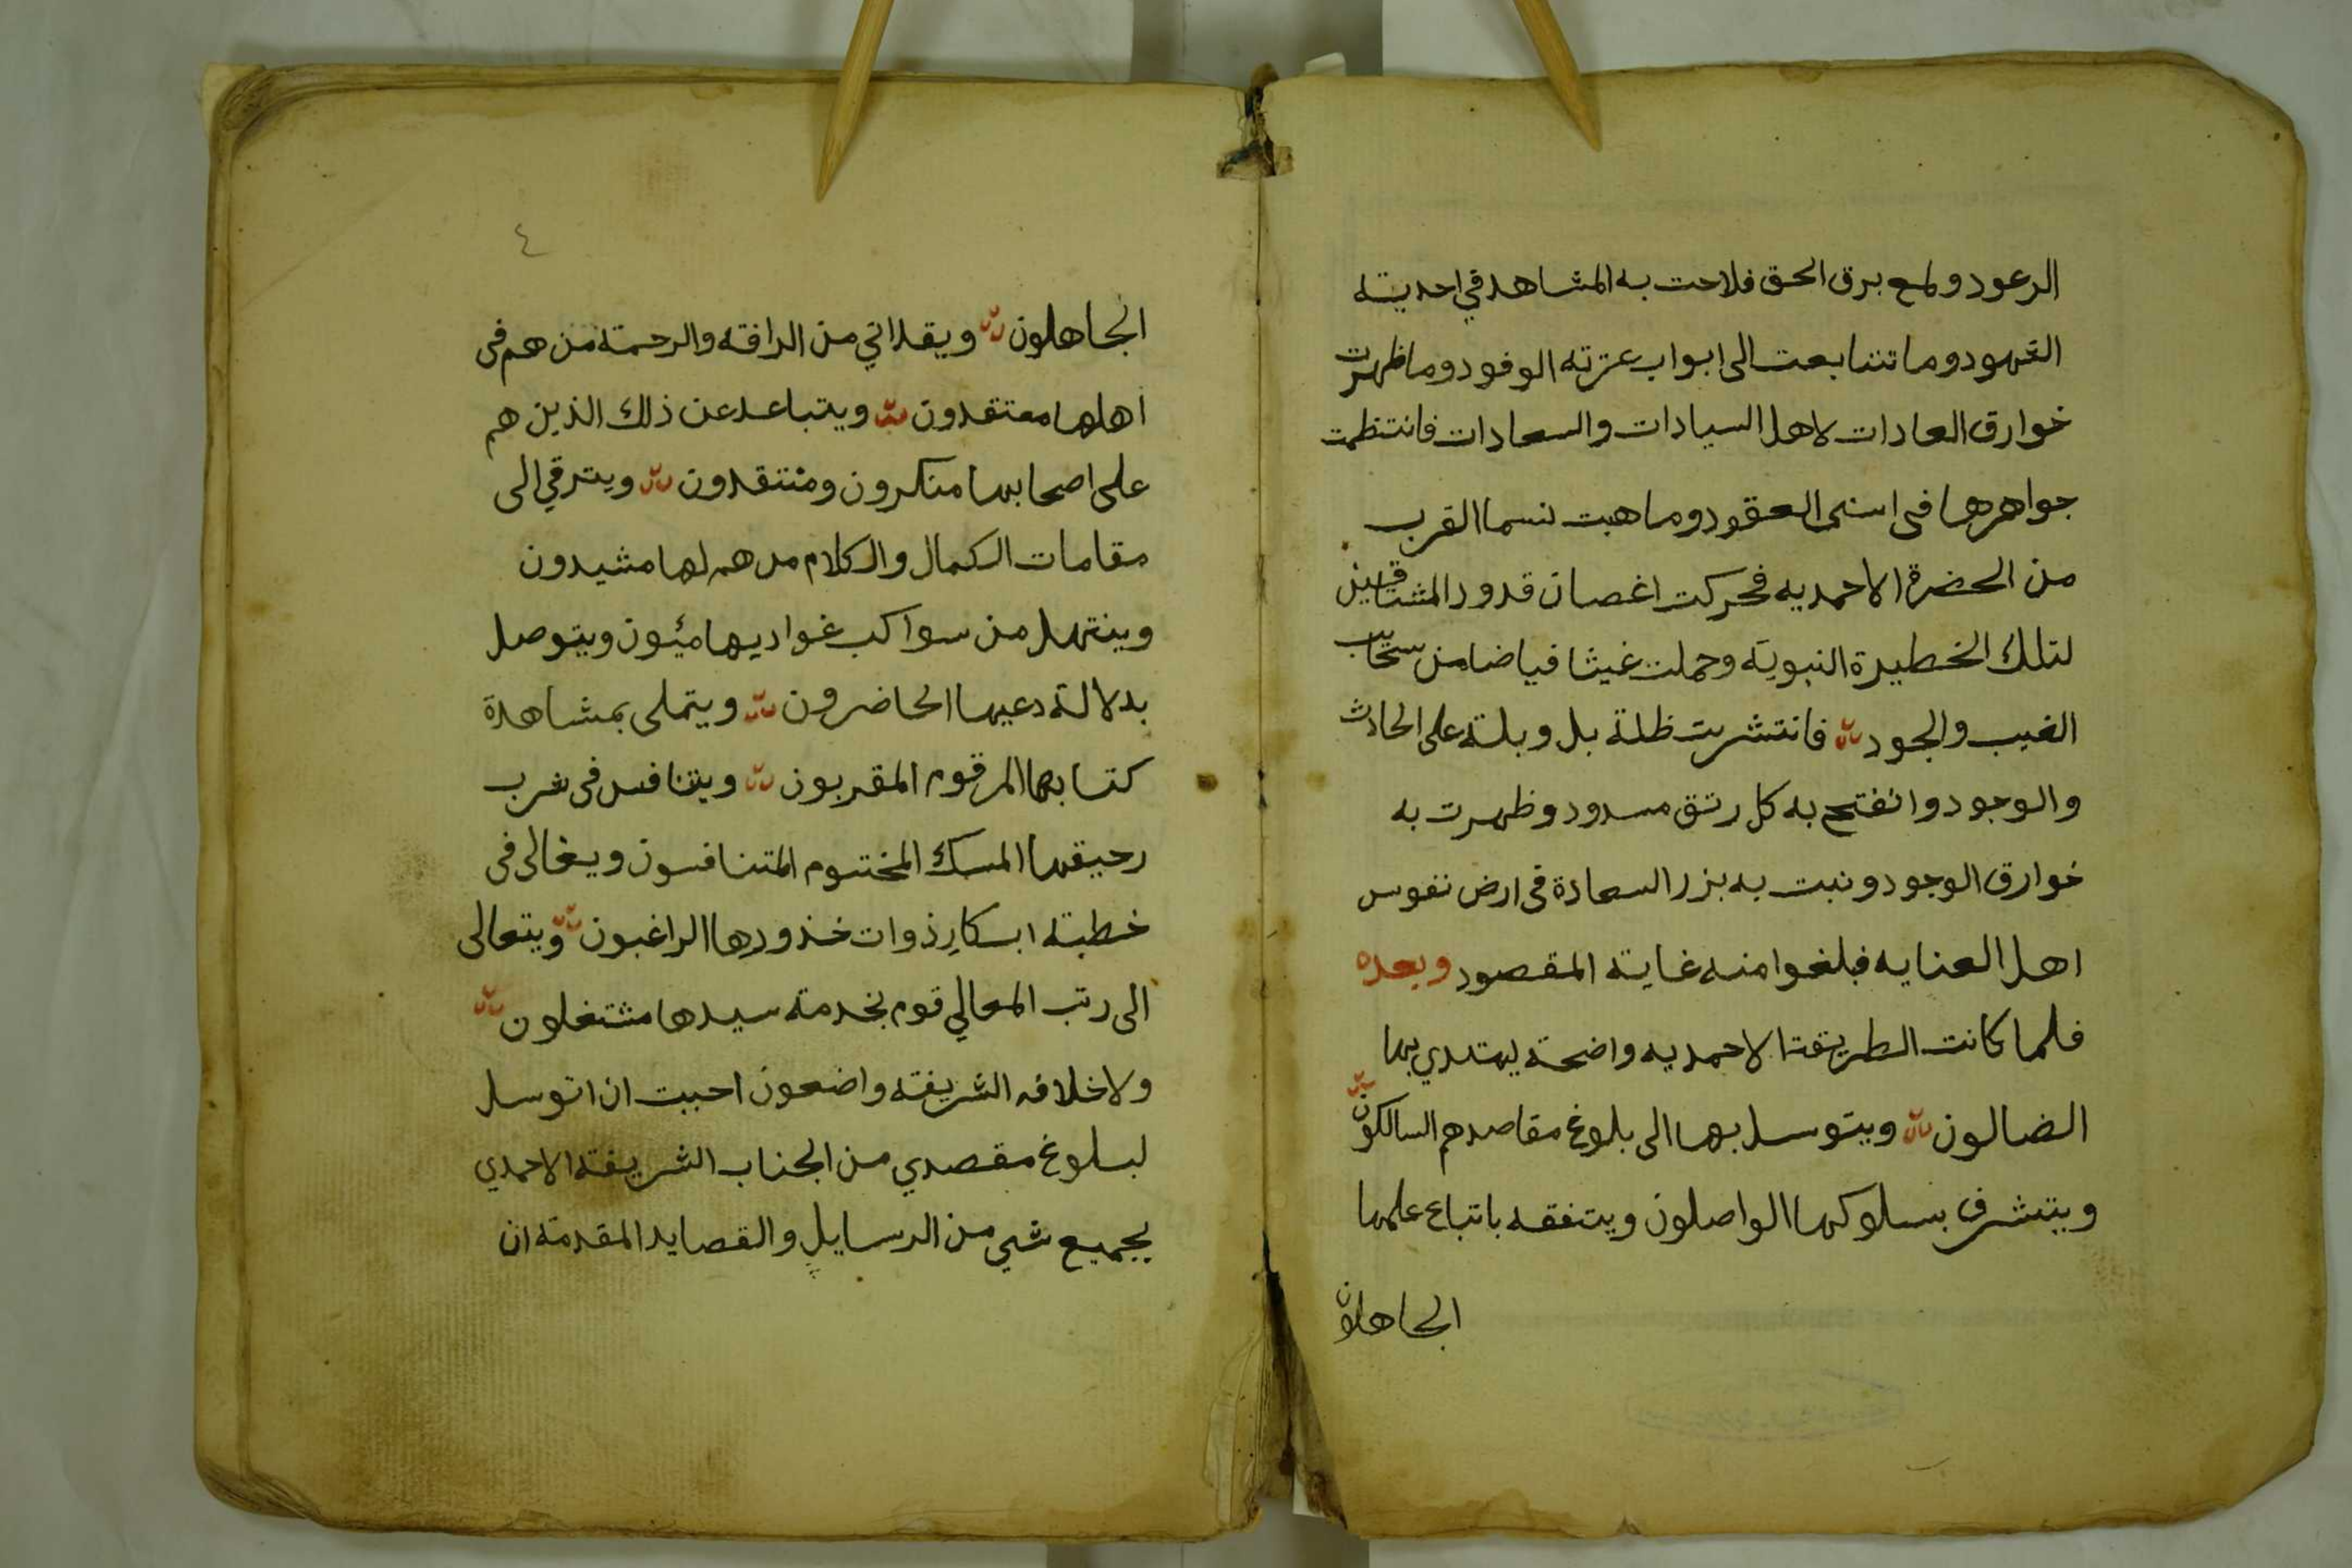 الرعود ولمع برق الحق فلاحت به المشاهد في احدية
الشهود وما تتابعت الى ابواب عزته الوفود وما ظهرت
خوارق العادات لاهل السيادات والسعادات فانتظمت
جواهرها في اسنى العقود وما هبت نسما القرب
من الحضرة الاحمديه فحركت اغصان قدود المشتاقين
لتلك الخطيرة النبوية وحملت غيثا فياضا من سحاب
الغيب والجود فانتشرت ظلة بل وبلة على الحادث
والوجود وانفتح به كل رتق مسدود وظهرت به
خوارق الوجود ونبت به بزر السعادة في ارض نفوس
اهل العنايه فبلغوا منه غاية المقصود وبعده
فلما كانت الطريقة الاحمديه واضحة يهتدي بها
الضالون ويتوسل بها الى بلوغ مقاصدهم السالكون
ويتشرف بسلوكها الواصلون ويتفقه باتباع علمها
الجاهلون
٤
الجاهلون ويقداني من الرافة والرحمة من هم في
اهلها معتقدون ويتباعد عن ذلك الذين هم
على اصحابها منكرون ومنتقدون ويترقي الى
مقامات الكمال والكلام من هم لها مشيدون
وينتهل من سواكب غواديها ميئون ويتوصل
بدلالة دعيها الحاضرون ويتملى بمشاهدة
كتابها المرقوم المقربون ويتنافس في شرب
رحيقها المسك المختوم المتنافسون ويغالى في
خطبة ابكار ذوات خذورها الراغبون ويتعالى
الى رتب المعالي قوم بخدمة سيدها مشتغلون
ولاخلافه الشريفة واضعون احببت ان اتوسل
لبلوغ مقصدي من الجناب الشريفة الاحمدي
بجميع شي من الرسايل والقصايد المقدمة ان